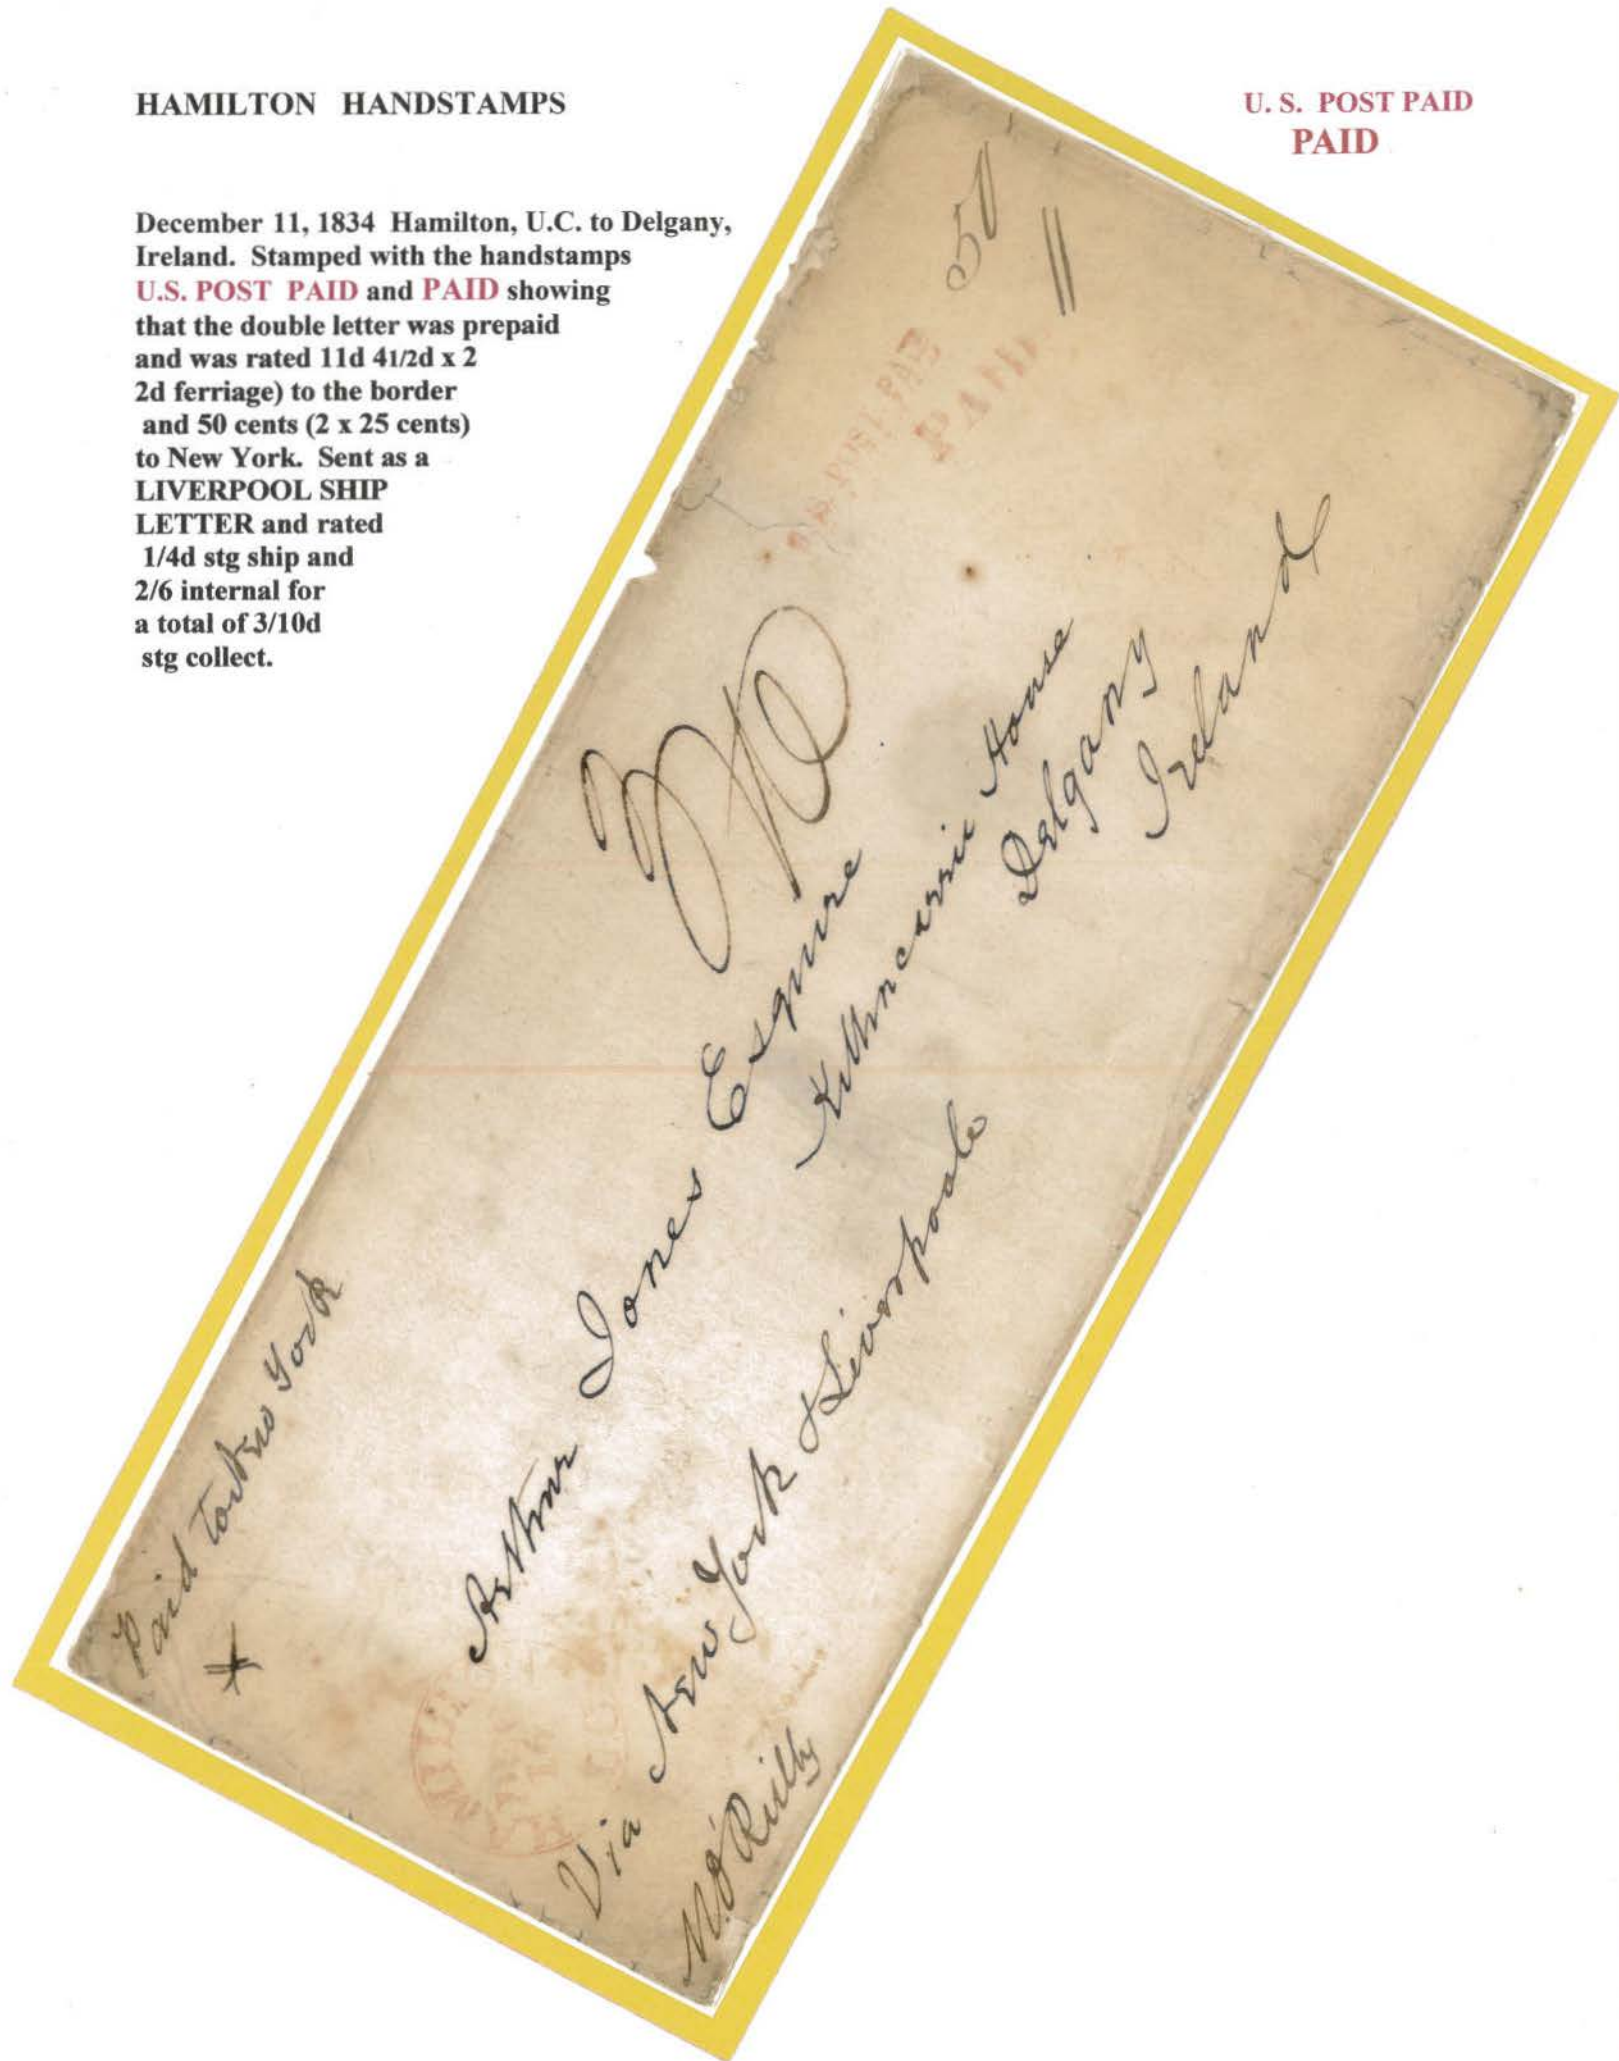 HAMILTON HANDSTAMPS
U. S. POST PAID
PAID
December 11, 1834 Hamilton, U.C. to Delgany,
Ireland. Stamped with the handstamps
U.S. POST PAID and PAID showing
that the double letter was prepaid
and was rated 11d 41/2d x 2
2d ferriage) to the border
and 50 cents (2 x 25 cents)
to New York. Sent as a
LIVERPOOL SHIP
LETTER and rated
1/4d stg ship and
2/6 internal for
a total of 3/10d
stg collect.
50
11
POST PAID
PAID
3/10
Paid to New York
Arthur Jones Esquire
House
Delgany
Ireland
Via New York & Liverpoole
HAMIL